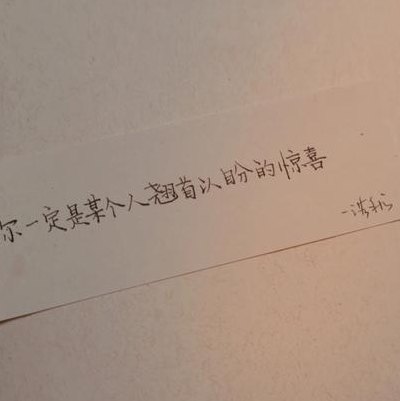 你一定是某个人翘首以盼的惊喜